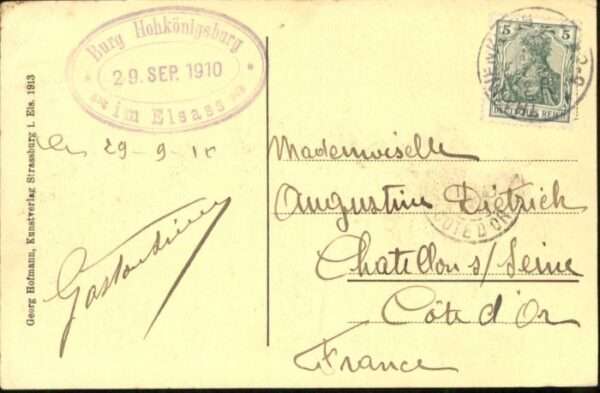 Burg Hohkönigsburg
29. SEP. 1910
im Elsass
5 5
DEUTSCHES REICH
29-9-10
Mademoiselle
Augustine Dietrich
Chatillon s/ Seine
Côte d'Or
France
COTE D'OR
Georg Hofmann, Kunstverlag Strassburg i. Els. 1913